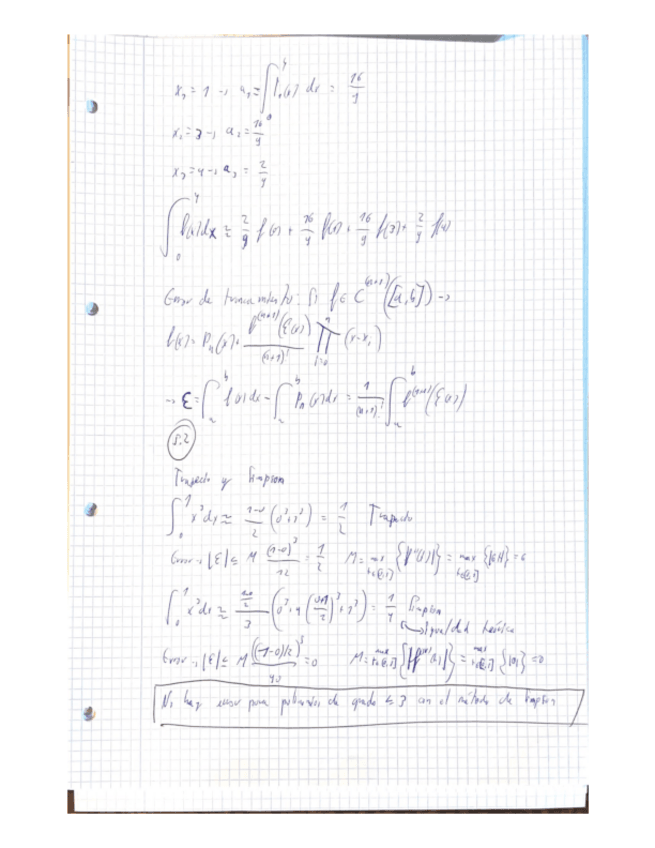 x₁ = 1 → a₁ = ∫₀⁴ l₁(x) dx = 16/9
x₂ = 3 → a₂ = 16/9
x₃ = 4 → a₃ = 2/9
∫₀⁴ f(x)dx ≈ 2/9 f(0) + 16/9 f(1) + 16/9 f(3) + 2/9 f(4)
Error de truncamiento: Si f ∈ C⁽ⁿ⁺¹⁾([a,b]) →
f(x) = Pₙ(x) + f⁽ⁿ⁺¹⁾(ξ(x))/(n+1)! ∏ᵢ₌₀ⁿ (x-xᵢ)
→ ε = ∫ₐᵇ f(x)dx - ∫ₐᵇ Pₙ(x)dx = 1/(n+1)! ∫ₐᵇ f⁽ⁿ⁺¹⁾(ξ(x))
5.2
Trapecio y Simpson
∫₀¹ x³dx ≈ (1-0)/2 (0³+1³) = 1/2 Trapecio
Error → |ε| ≤ M (1-0)³/12 = 1/2 M = max {|f''(x)|} = max {|6x|} = 6
∫₀¹ x³dx ≈ /3 (0³+4((0+1)/2)³+1³) = 1/4 Simpson
Igualdad teórica
Error → |ε| ≤ M ((1-0)/2)⁵/90 = 0 M = max = max {|0|} = 0
No hay error para polinomios de grado ≤ 3 en el método de Simpson